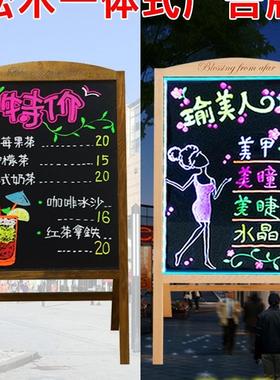 实木一体式广告牌
特价
草莓果茶 20
柠檬茶 15
港式奶茶 20
咖啡冰沙 16
红茶拿鐵 20
Blessing from afar
瑜美人
美甲
美瞳
美睫
水晶